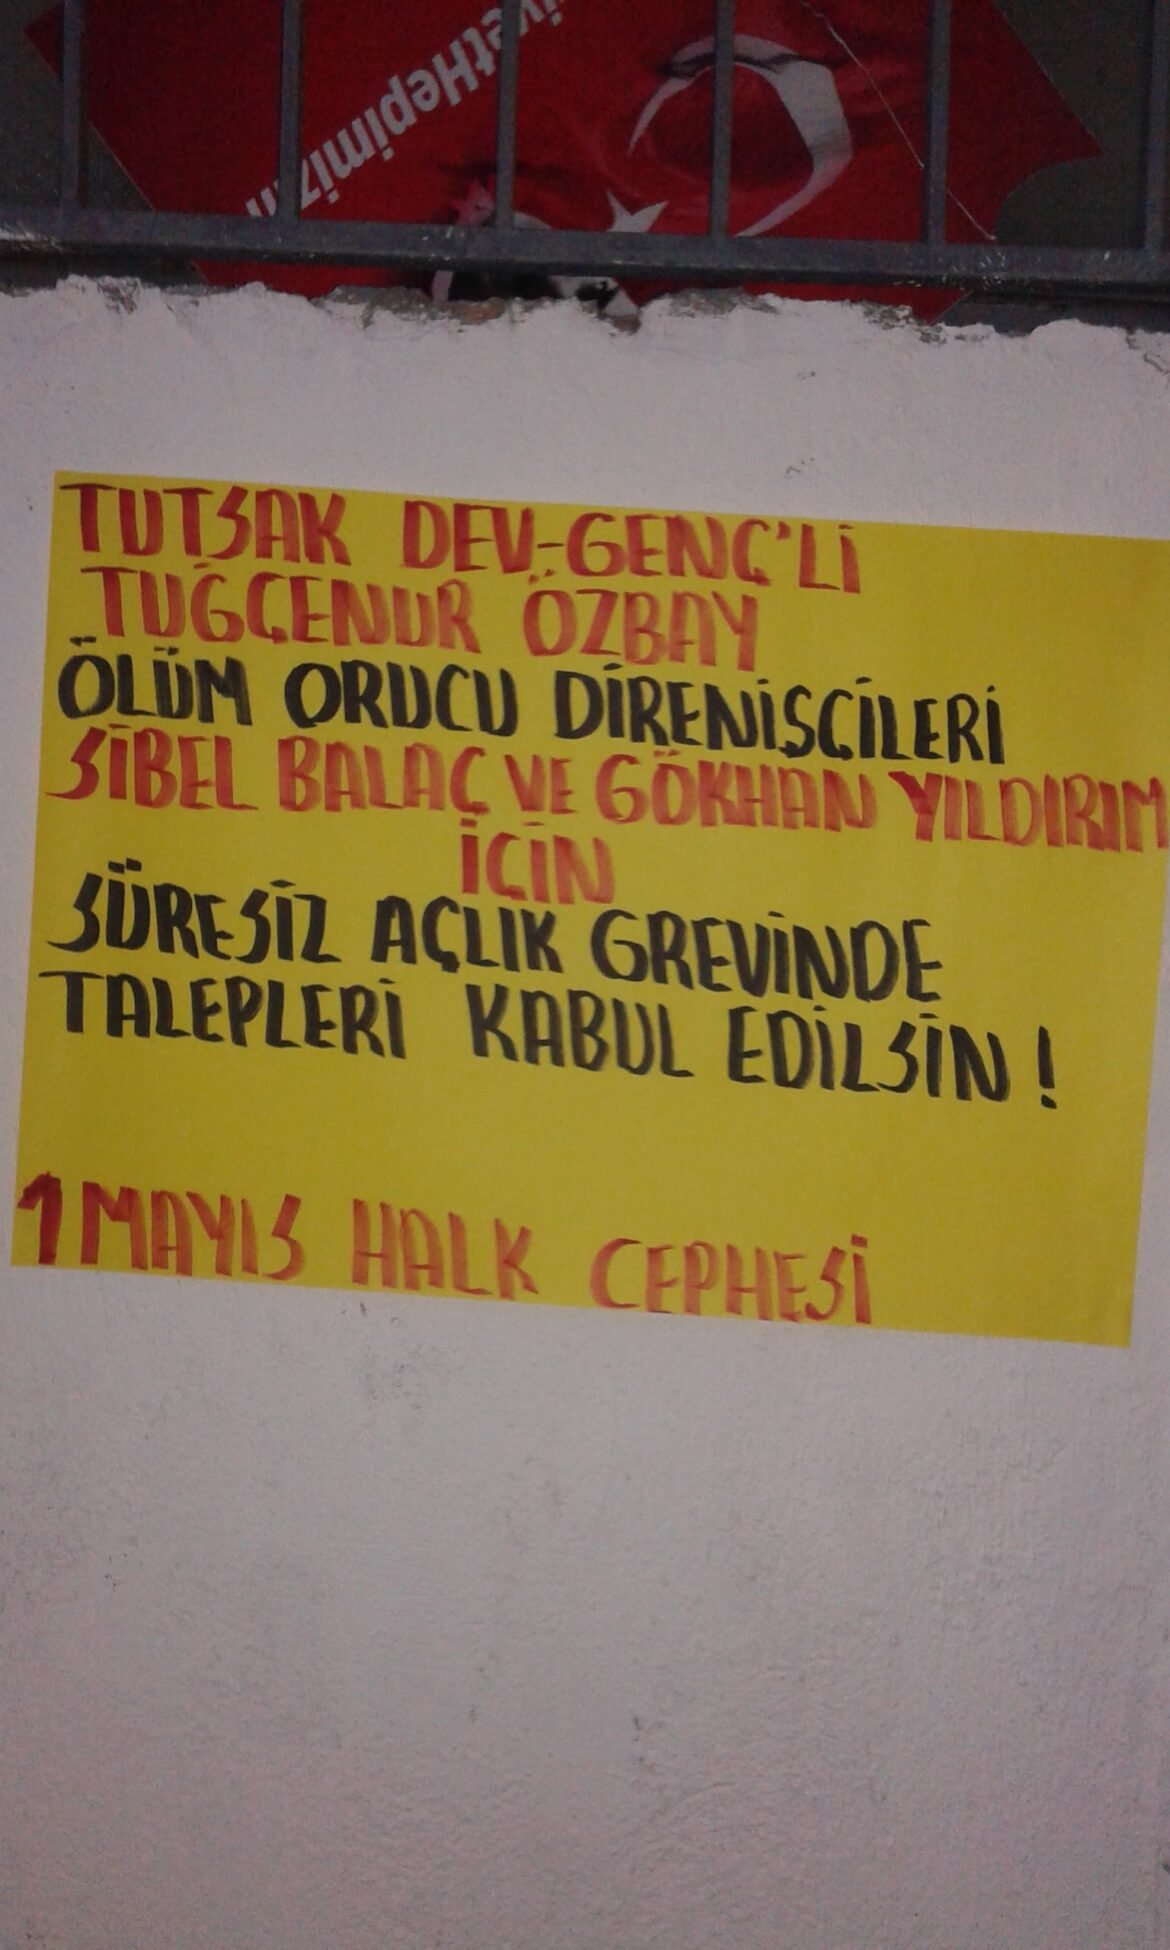 ivetHepimizin
TUTSAK DEV-GENÇ'Lİ
TUĞÇENUR ÖZBAY
ÖLÜM ORUCU DİRENİŞÇİLERİ
SİBEL BALAÇ VE GÖKHAN YILDIRIM
İÇİN
SÜRESİZ AÇLIK GREVİNDE
TALEPLERİ KABUL EDİLSİN !
1 MAYIS HALK CEPHESİ